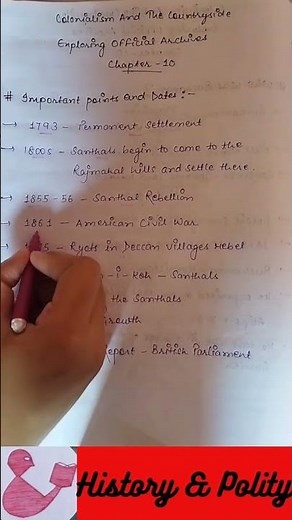 Colonialism And The Countryside
Exploring Official Archives
Chapter - 10
# Important points and Dates :-
→ 1793 - Permanent Settlement
→ 1800s - Santhals begin to come to the
Rajmahal hills and settle there.
→ 1855-56 - Santhal Rebellion
→ 1861 - American Civil War
Ryots in Deccan villages rebel
- i - Koh - Santhals
the Santhals
Report - British Parliament
History & Polity